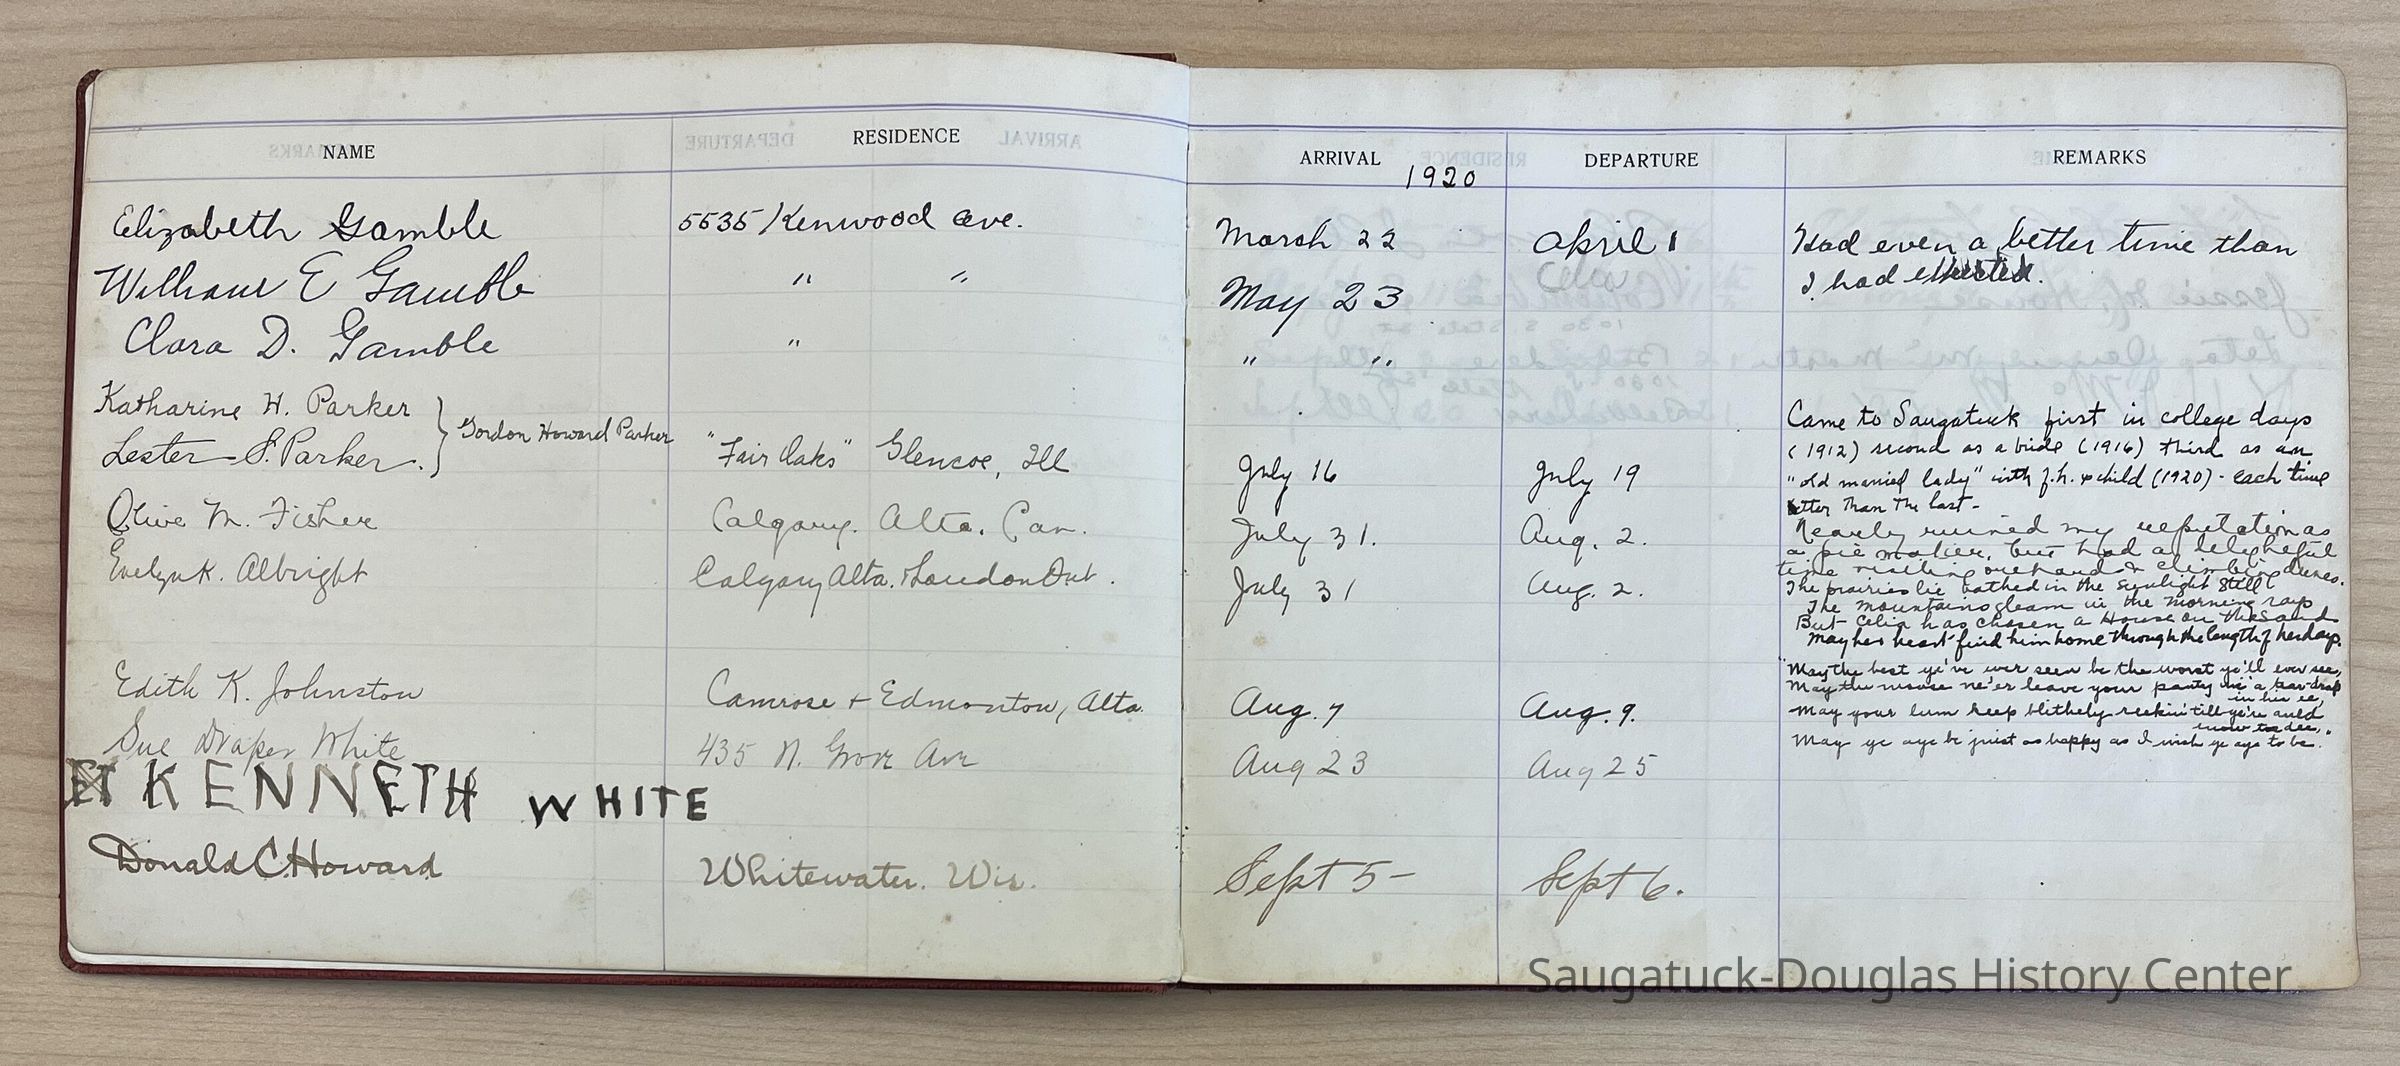 NAME RESIDENCE ARRIVAL DEPARTURE REMARKS
1920
Elizabeth Gamble 5535 Kenwood Ave. March 22 April 1 Had even a better time than
I had
William E Gamble " " May 23
Clara D. Gamble " " "
Katharine H. Parker
Lester S. Parker. } Gordon Howard Parker "Fair Oaks" Glencoe, Ill July 16 July 19
Came to Saugatuck first in college days
(1912) second as a bride (1916) third as an
"old married lady" with f.h. & child (1920) - each time
better than the last -
Olive M. Fisher Calgary. Alta. Can. July 31. Aug. 2.
Nearly ruined my reputation as
a pie maker, but had a delightful
time climbing dunes.
Evelyn K. Albright Calgary Alta. & London Ont. July 31 Aug. 2.
The prairies lie bathed in the sunlight still
The mountains gleam in the morning rays
But Celia has chosen a House on the Sand
May her heart find him home through the length of her days.
Edith K. Johnston Camrose + Edmonton, Alta. Aug. 7 Aug. 9.
"May the best ye've ever seen be the worst ye'll ever see,
May the mouse ne'er leave your pantry wi' a tear-drap
in his ee,
May your lum keep blithely reekin' till ye're auld
enow to dee,
May ye aye be juist as happy as I wish ye aye to be."
Sue Draper White 435 N. Grove Ave Aug 23 Aug 25
KENNETH WHITE
Donald C. Howard Whitewater. Wis. Sept 5- Sept 6.
Saugatuck-Douglas History Center